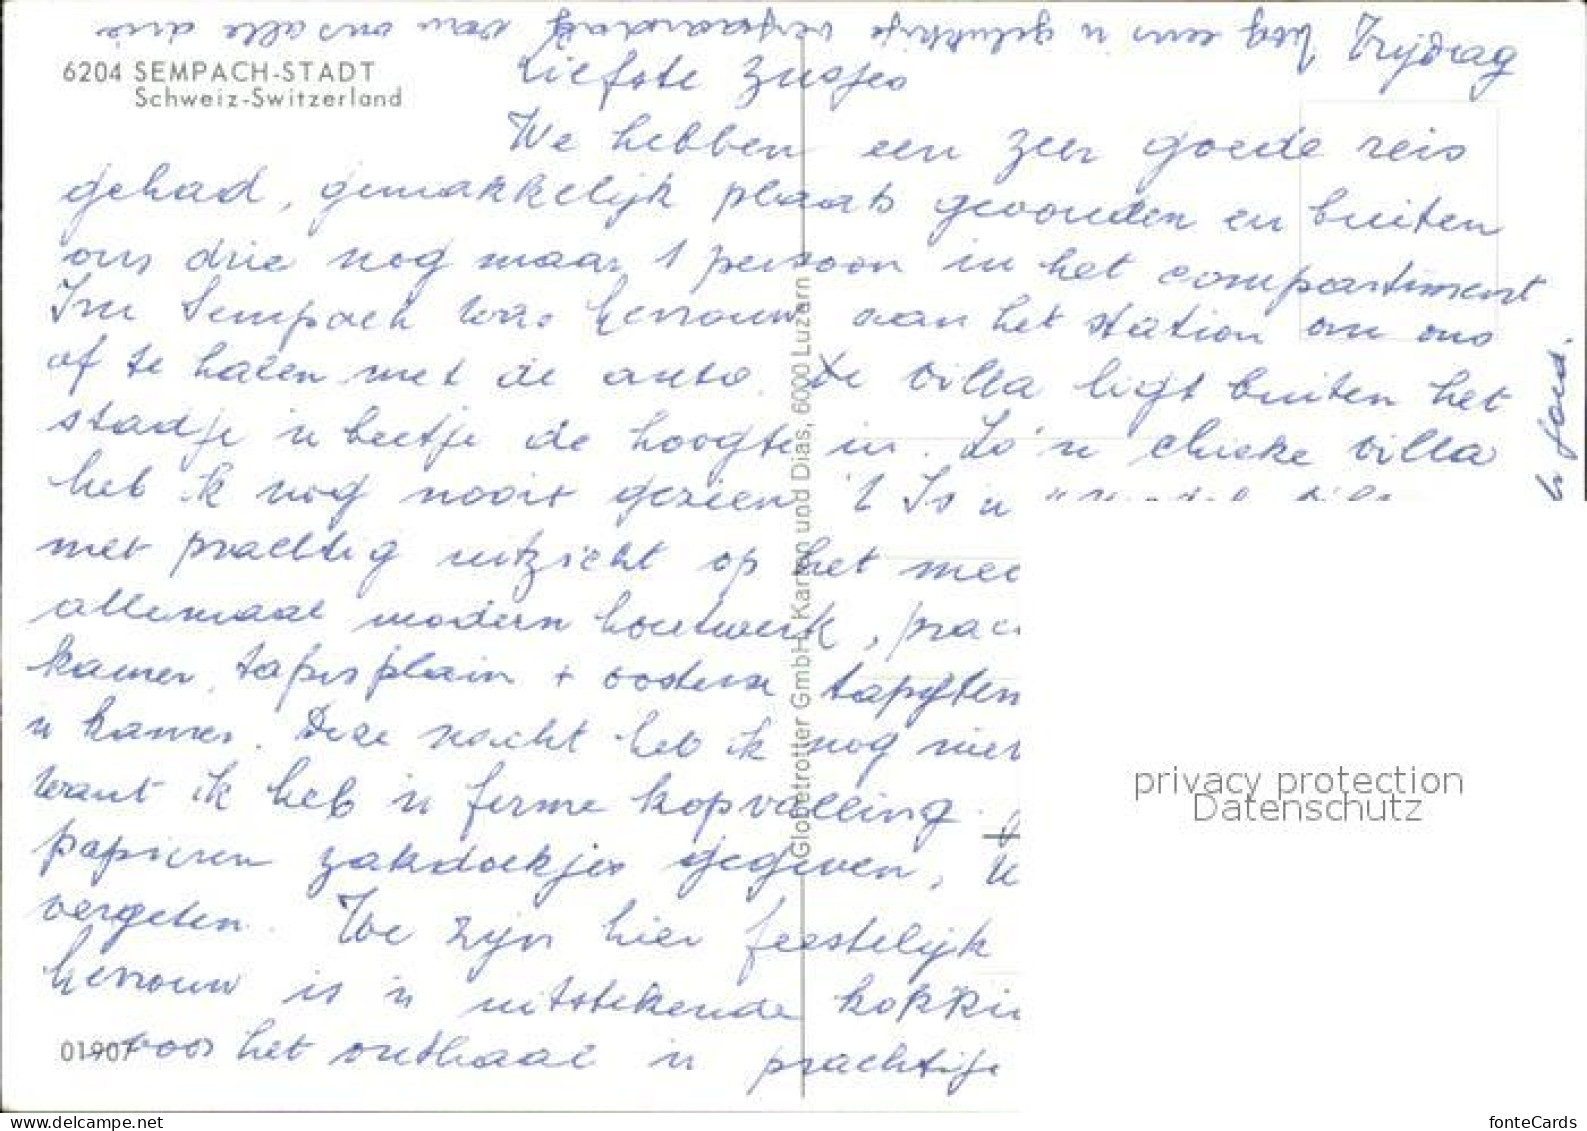 Nog eens n gelukkige verjaardag van ons alle drie
Vrijdag
6204 SEMPACH-STADT
Schweiz-Switzerland
Liefste Zusjes
We hebben een zeer goede reis
gehad, gemakkelijk plaats gevonden en buiten
ons drie nog maar 1 persoon in het compartiment
In Sempach was aan het station om ons
af te halen met de auto. De villa ligt buiten het
stadje n beetje de hoogte in. Zo'n chieke villa
heb ik nog nooit gezien 't Is n
met prachtig uitzicht op het mee
allemaal modern houtwerk, prac
kamer, tapis plain + oosterse tapijten
n kamer. Deze nacht heb ik nog nie
want ik heb n ferme kopvalling.
papieren zakdoekjes gegeven,
vergeten. We zijn hier feestelijk
is n uitstekende kokki
voor het onthaal n prachtige
01907
Globetrotter GmbH, Karten und Dias, 6000 Luzern
privacy protection
Datenschutz
fonteCards